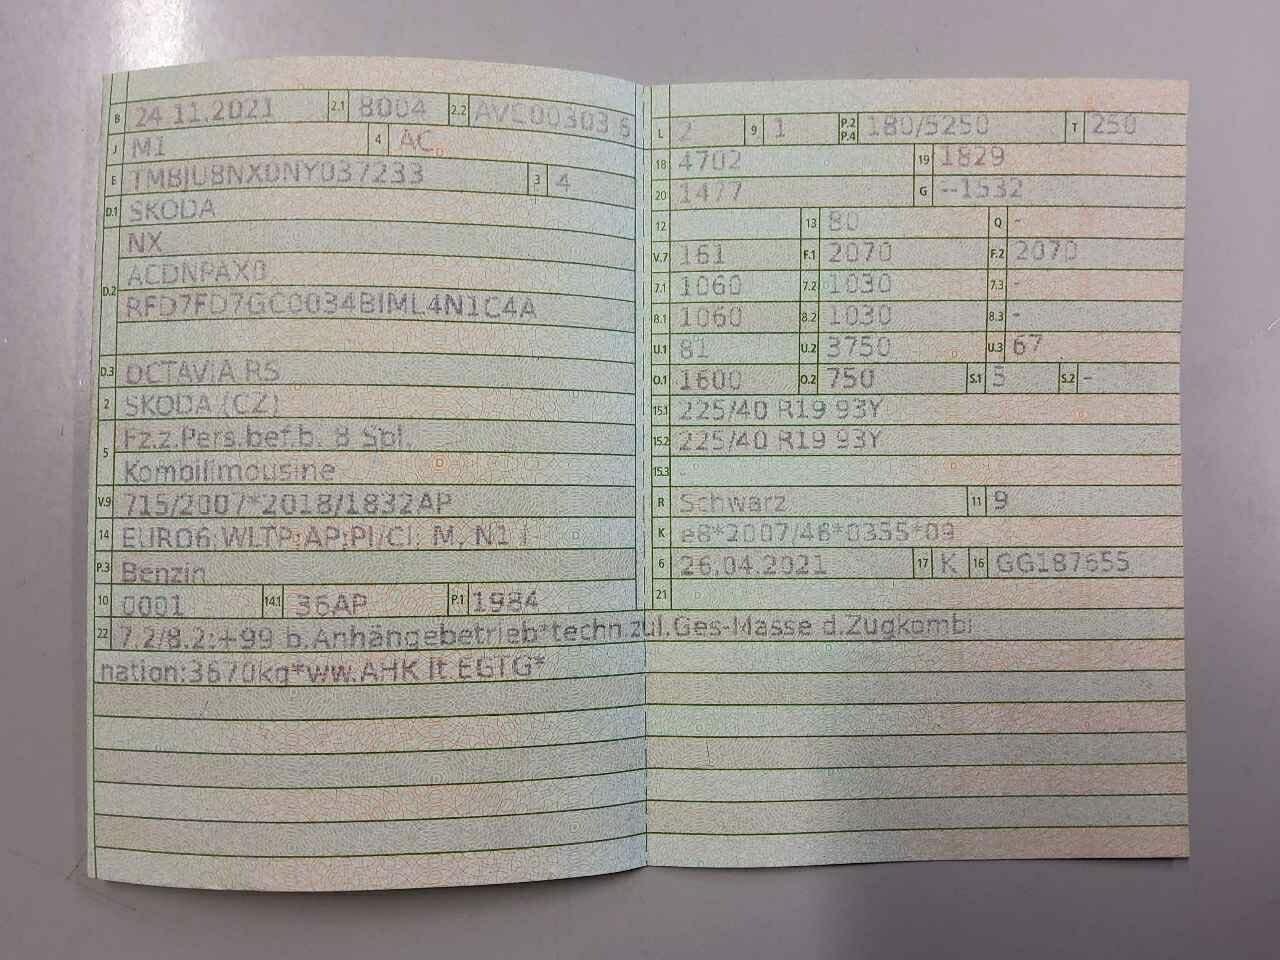 B 24.11.2021 2.1 8004 2.2 AVE00303 6
J M1 4 AC
E TMBJU8NX0NY037233 3 4
D.1 SKODA
NX
D.2 ACDNPAX0
RFD7FD7GC0034BIML4N1C4A
D.3 OCTAVIA RS
2 SKODA (CZ)
5 Fz.z.Pers.bef.b. 8 Spl.
Kombilimousine
V.9 715/2007*2018/1832AP
14 EURO6;WLTP;AP;PI/CI; M, N1 I
P.3 Benzin
10 0001 14.1 36AP P.1 1984
L 2 9 1 P.2 P.4 180/5250 T 250
18 4702 19 1829
20 1477 G --1532
12 13 80 Q -
V.7 161 F.1 2070 F.2 2070
7.1 1060 7.2 1030 7.3 -
8.1 1060 8.2 1030 8.3 -
U.1 81 U.2 3750 U.3 67
O.1 1600 O.2 750 S.1 5 S.2 -
15.1 225/40 R19 93Y
15.2 225/40 R19 93Y
15.3
R Schwarz 11 9
K e8*2007/46*0355*09
6 26.04.2021 17 K 16 GG187655
21
22 7.2/8.2:+99 b.Anhängebetrieb*techn.zul.Ges-Masse d.Zugkombi
nation:3670kg*ww.AHK lt.EGTG*